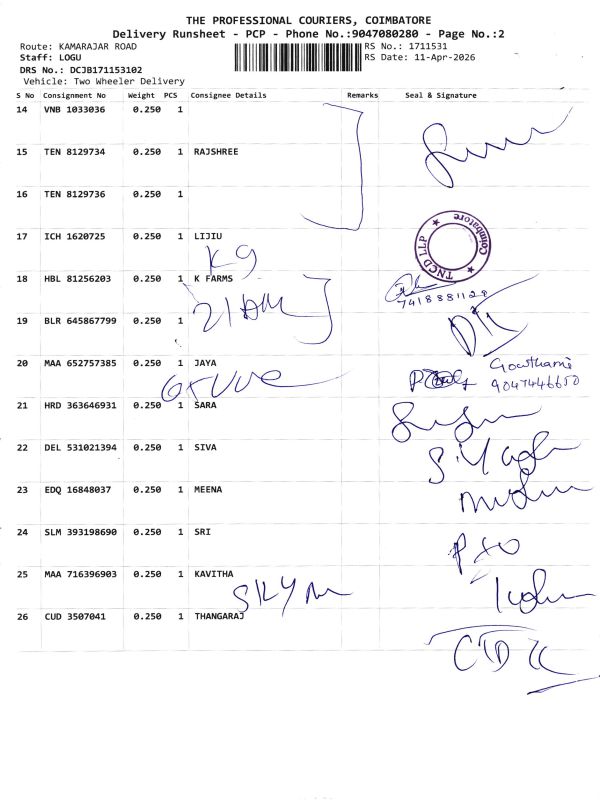 THE PROFESSIONAL COURIERS, COIMBATORE
Delivery Runsheet - PCP - Phone No.:9047080280 - Page No.:2
Route: KAMARAJAR ROAD RS No.: 1711531
Staff: LOGU RS Date: 11-Apr-2026
DRS No.: DCJB171153102
Vehicle: Two Wheeler Delivery
S No Consignment No Weight PCS Consignee Details Remarks Seal & Signature
14 VNB 1033036 0.250 1
15 TEN 8129734 0.250 1 RAJSHREE
16 TEN 8129736 0.250 1
17 ICH 1620725 0.250 1 LIJIU
K9
TNCD LLP ★ Coimbatore ★
18 HBL 81256203 0.250 1 K FARMS
7418881128
19 BLR 645867799 0.250 1
20 MAA 652757385 1 JAYA Gowthami
0.250 9047446650
21 HRD 363646931 0.250 1 SARA
22 DEL 531021394 0.250 1 SIVA
23 EDQ 16848037 0.250 1 MEENA
24 SLM 393198690 0.250 1 SRI
25 MAA 716396903 0.250 1 KAVITHA
26 CUD 3507041 0.250 1 THANGARAJ